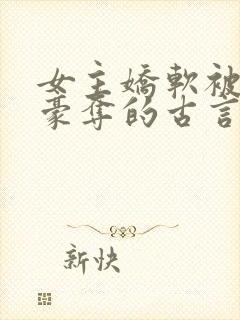 女主嬌軟被
豪奪的古言
新快